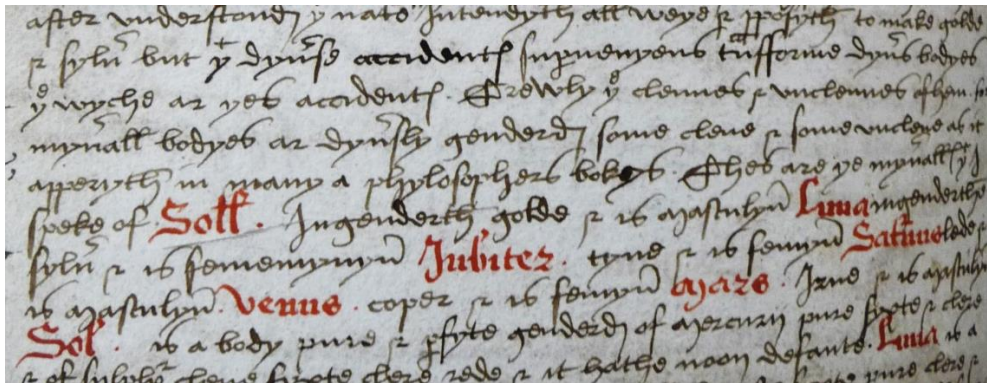 after vnderstondy yt nature Intendyth all weye & pposyth to make golde
& sylu but yt dyuse accidentes supuenyens trasforme dyus bodyes
ye wyche ar yes accidentes. Trewly ye clennes & vnclennes of hem. for
mynall bodyes ar dyusly genderdy some clene & some vnclene as it
apperyth in many a phylosophers bokes. Thes are ye mynalls yt I
speke of Soll. Ingenderth golde & is masculyn Luna ingenderth
sylu & is fememynyn Jubiter. tyne & is femyn Saturne lede &
is masculyn. Venus. coper & is femyn mars. Irne & is masculyn
Sol. is a body pure & pfyte genderdy of mercurij pure fyxte & clere
& of sulphur clene fyxte clere rede & it hathe noon defaute. Luna is a
pure clere &